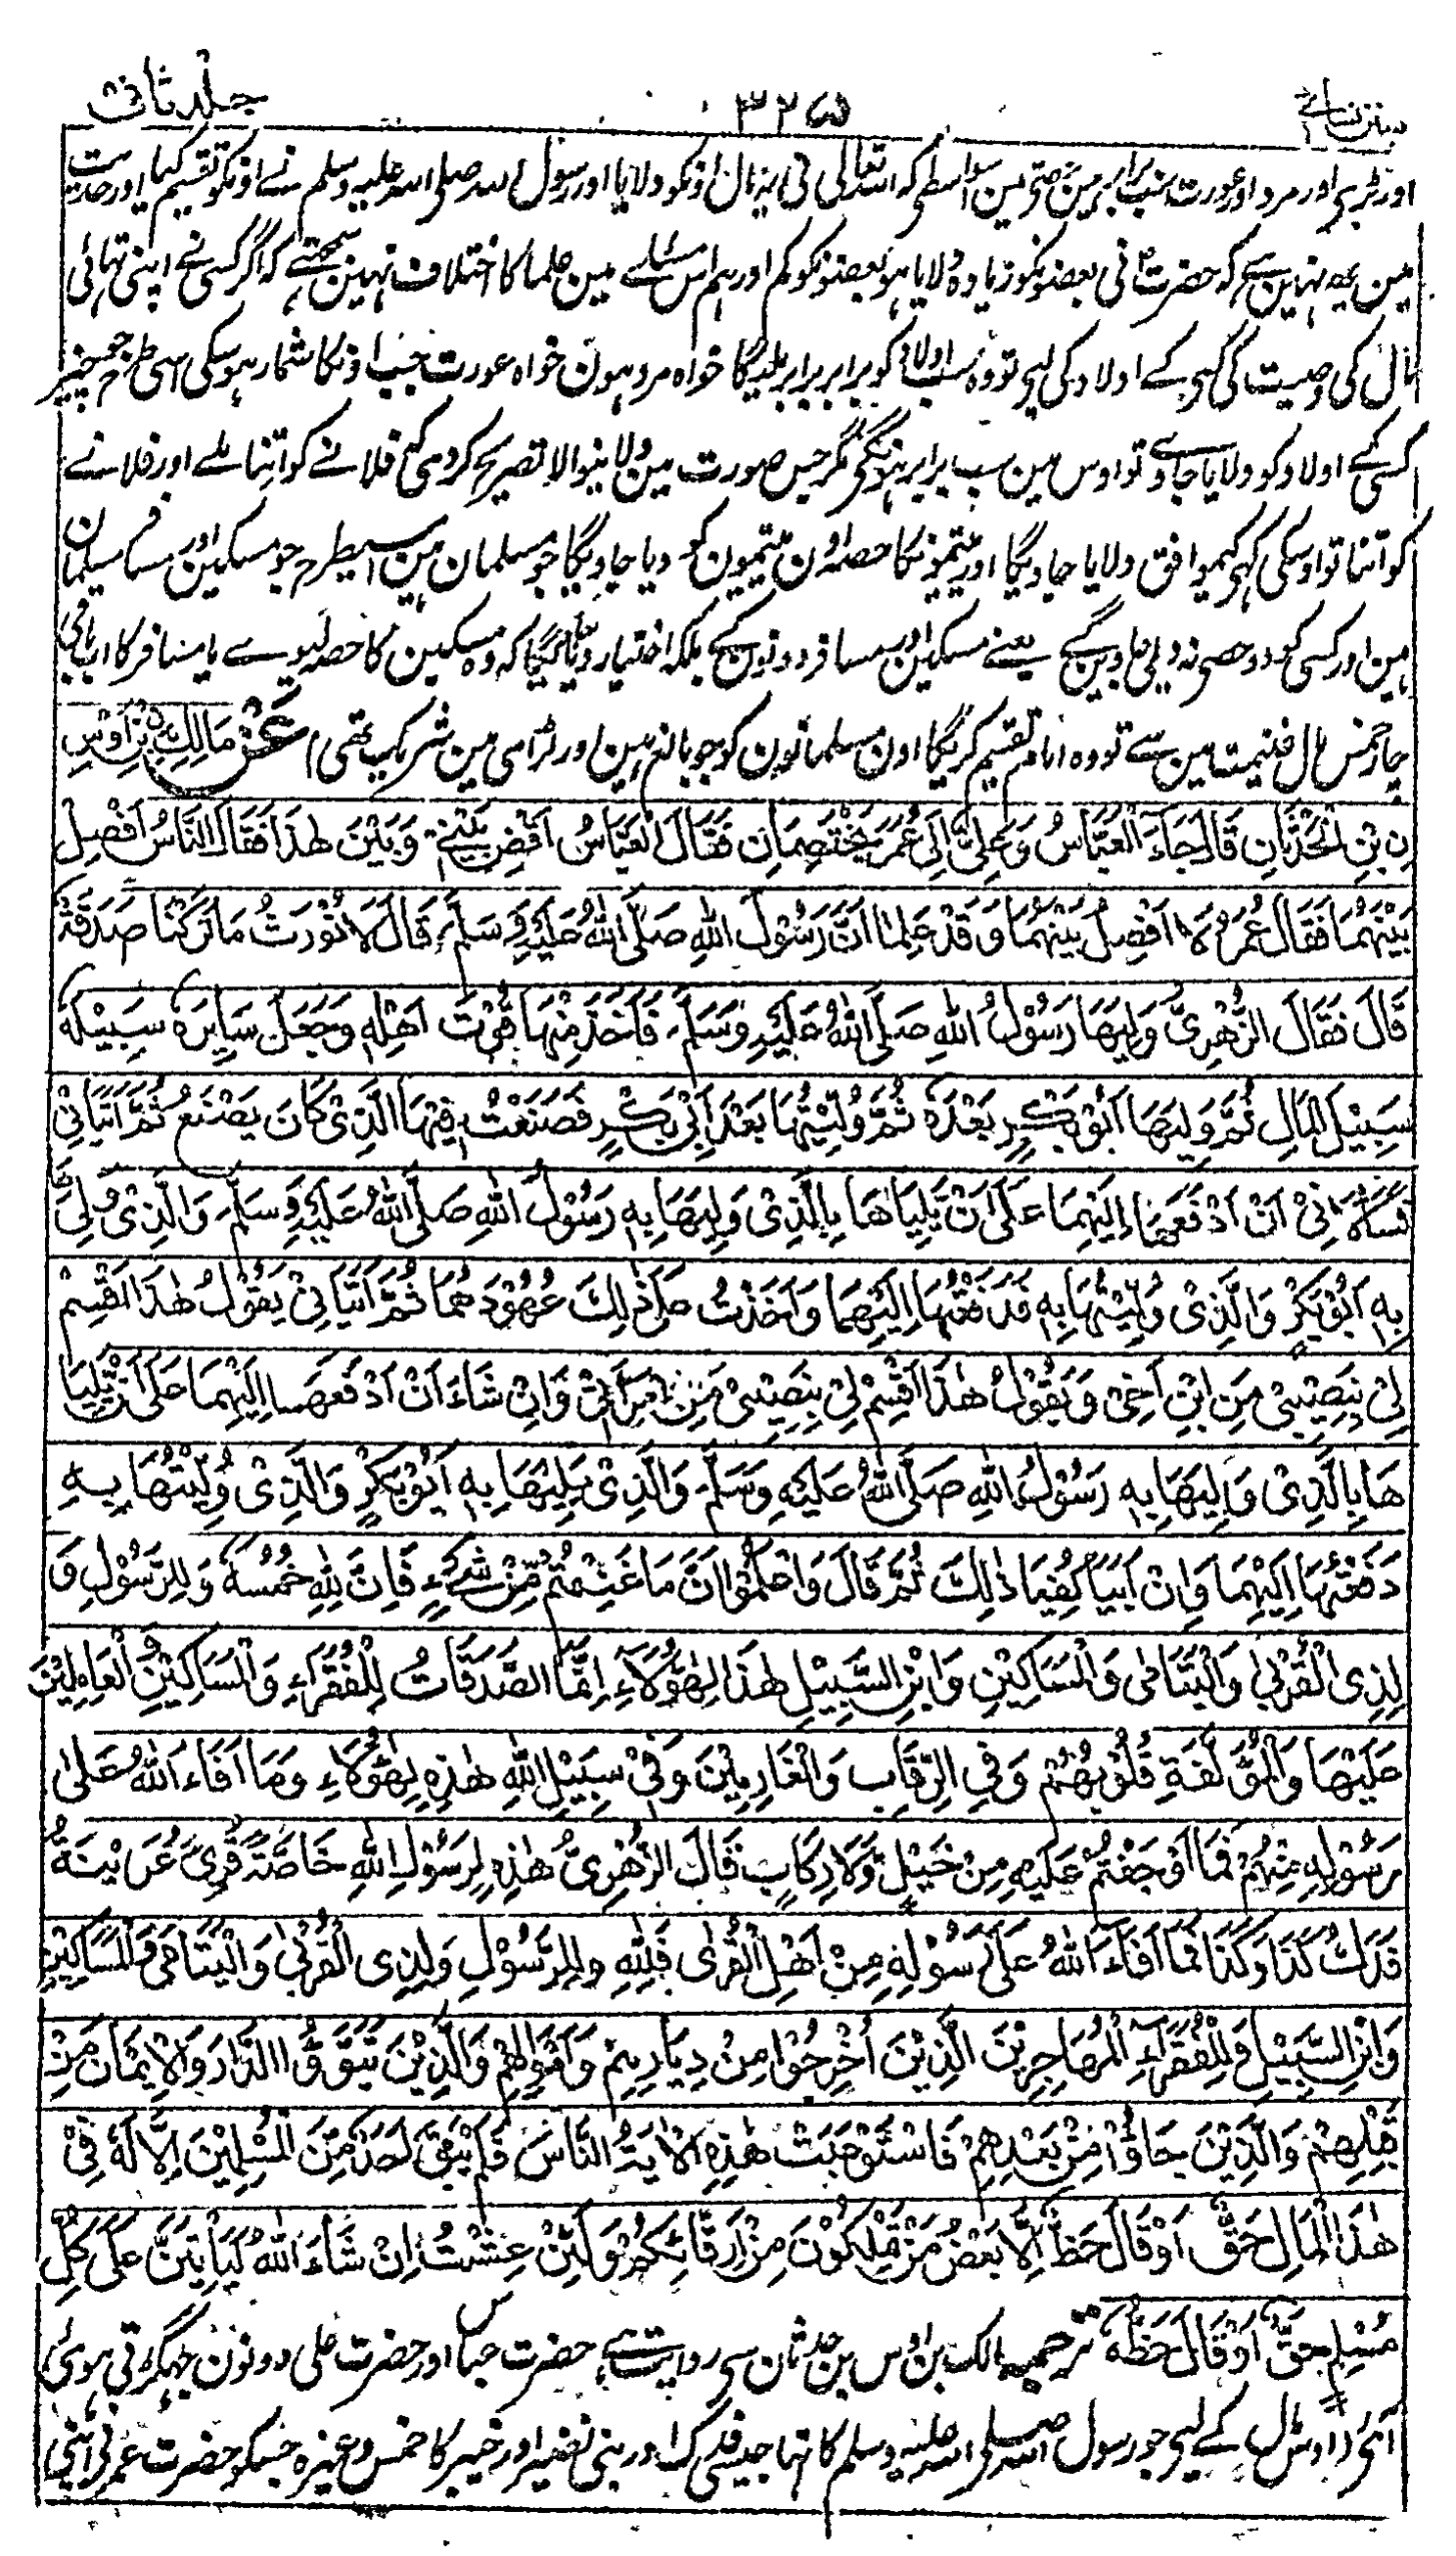 سنن نسائے ۳۲۵ جلد ثانی
اور لڑکی اور مرد اور عورت سب برابر ہین حق مین اسواسطے کہ اللہ تعالی نی یہ مال اونکو دلایا اور رسول اللہ صلی اللہ علیہ وسلم نے اونکو تقسیم کیا اور حدیث
مین یہہ نہین ہے کہ حضرت نی بعضونکو زیادہ دلایا ہو بعضونکو کم اور ہم اس مسئلے مین علما کا اختلاف نہین سمجھتے کہ اگر کسی نے اپنی تہائی
مال کی وصیت کی کسی کے اولاد کی لیے تو وہ سب اولاد کو برابر برابر ملیگا خواہ مرد ہون خواہ عورت جب اونکا شمار ہو سکی اسی طرح جو چیز
کسی کے اولاد کو دلایا جاوے تو اوس مین سب برابر ہونگی مگر جس صورت مین دلانیوالا تصریح کردی کہ فلانے کو اتنا ملے اور فلانے
کو اتنا تو اوسکی کہے کے موافق دلایا جاویگا اور یتیمونکا حصہ اون یتیمون کو دیا جاویگا جو مسلمان ہین اسیطرح جو مسکین اور مسافر مسلمان
ہین اور کسی کو دو حصی نہ دیی جاوینگے یعنے مسکین اور مسافر دونون کے بلکہ اختیار دیا جاویگا کہ وہ مسکین کا حصہ لیوے یا مسافر کا اب باقی
چار خمس مال غنیمت مین سے تو وہ امام تقسیم کریگا اون مسلمانون کو جو بالغ ہین اور لڑائی مین شریک تھی عَنْ مَالِكِ بْنِ أَوْسِ
نِ بْنِ الْحَدَثَانِ قَالَ جَاءَ الْعَبَّاسُ وَعَلِيٌّ إِلَى عُمَرَ يَخْتَصِمَانِ فَقَالَ الْعَبَّاسُ اقْضِ بَيْنِيْ وَبَيْنَ هٰذَا فَقَالَ النَّاسُ افْصِلْ
بَيْنَهُمَا فَقَالَ عُمَرُ لَا أَفْصِلُ بَيْنَهُمَا وَقَدْ عَلِمَا أَنَّ رَسُوْلَ اللهِ صَلَّى اللهُ عَلَيْهِ وَسَلَّمَ قَالَ لَا نُوْرَثُ مَا تَرَكْنَا صَدَقَةٌ
قَالَ فَقَالَ الزُّهْرِيُّ وَلِيَهَا رَسُوْلُ اللهِ صَلَّى اللهُ عَلَيْهِ وَسَلَّمَ فَأَخَذَ مِنْهَا قُوْتَ أَهْلِهِ وَجَعَلَ سَايِرَهُ سَبِيْلَهُ
سَبِيْلَ الْمَالِ ثُمَّ وَلِيَهَا أَبُوْ بَكْرٍ بَعْدَهُ ثُمَّ وُلِّيْتُهَا بَعْدَ أَبِيْ بَكْرٍ فَصَنَعْتُ فِيْهَا الَّذِيْ كَانَ يَصْنَعُ ثُمَّ أَتَيَانِيْ
فَسَأَلَانِيْ أَنْ أَدْفَعَهَا إِلَيْهِمَا عَلَى أَنْ يَلِيَاهَا بِالَّذِيْ وَلِيَهَا بِهِ رَسُوْلُ اللهِ صَلَّى اللهُ عَلَيْهِ وَسَلَّمَ وَالَّذِيْ وَلِيَهَا
بِهِ أَبُوْ بَكْرٍ وَالَّذِيْ وُلِّيْتُهَا بِهِ فَدَفَعْتُهَا إِلَيْهِمَا وَأَخَذْتُ عَلَى ذٰلِكَ عُهُوْدَهُمَا ثُمَّ أَتَيَانِيْ يَقُوْلُ هٰذَا اقْسِمْ
لِيْ بِنَصِيْبِيْ مِنِ ابْنِ أَخِيْ وَيَقُوْلُ هٰذَا اقْسِمْ لِيْ بِنَصِيْبِيْ مِنِ امْرَأَتِيْ وَإِنْ شَاءَ أَنْ أَدْفَعَهَا إِلَيْهِمَا عَلَى أَنْ يَلِيَا
هَا بِالَّذِيْ وَلِيَهَا بِهِ رَسُوْلُ اللهِ صَلَّى اللهُ عَلَيْهِ وَسَلَّمَ وَالَّذِيْ يَلِيْهَا بِهِ أَبُوْ بَكْرٍ وَالَّذِيْ وُلِّيْتُهَا بِهِ
دَفَعْتُهَا إِلَيْهِمَا وَإِنْ أَبَيَا كُفِيَا ذٰلِكَ ثُمَّ قَالَ وَاعْلَمُوْا أَنَّ مَا غَنِمْتُمْ مِنْ شَيْءٍ فَإِنَّ لِلّٰهِ خُمُسَهُ وَلِلرَّسُوْلِ وَ
لِذِي الْقُرْبٰى وَالْيَتَامٰى وَالْمَسَاكِيْنِ وَابْنِ السَّبِيْلِ هٰذَا لِهٰؤُلَاءِ إِنَّمَا الصَّدَقَاتُ لِلْفُقَرَاءِ وَالْمَسَاكِيْنِ وَالْعَامِلِيْنَ
عَلَيْهَا وَالْمُؤَلَّفَةِ قُلُوْبُهُمْ وَفِي الرِّقَابِ وَالْغَارِمِيْنَ وَفِيْ سَبِيْلِ اللهِ هٰذِهِ لِهٰؤُلَاءِ وَمَا أَفَاءَ اللهُ عَلٰى
رَسُوْلِهِ مِنْهُمْ فَمَا أَوْجَفْتُمْ عَلَيْهِ مِنْ خَيْلٍ وَلَا رِكَابٍ قَالَ الزُّهْرِيُّ هٰذِهِ لِرَسُوْلِ اللهِ خَاصَّةً قُرًى عُرَيْنَةَ
فَدَكُ كَذَا وَكَذَا فَمَا أَفَاءَ اللهُ عَلَى رَسُوْلِهِ مِنْ أَهْلِ الْقُرٰى فَلِلّٰهِ وَلِلرَّسُوْلِ وَلِذِي الْقُرْبٰى وَالْيَتَامٰى وَالْمَسَاكِيْنِ
وَابْنِ السَّبِيْلِ وَلِلْفُقَرَآءِ الْمُهَاجِرِيْنَ الَّذِيْنَ أُخْرِجُوْا مِنْ دِيَارِهِمْ وَأَمْوَالِهِمْ وَالَّذِيْنَ تَبَوَّؤُا الدَّارَ وَالْإِيْمَانَ مِنْ
قَبْلِهِمْ وَالَّذِيْنَ جَاؤُا مِنْ بَعْدِهِمْ فَاسْتَوْعَبَتْ هٰذِهِ الْاٰيَةُ النَّاسَ فَلَمْ يَبْقَ أَحَدٌ مِنَ الْمُسْلِمِيْنَ إِلَّا لَهُ فِيْ
هٰذَا الْمَالِ حَقٌّ أَوْ قَالَ حَظٌّ إِلَّا بَعْضُ مَنْ تَمْلِكُوْنَ مِنْ أَرِقَّائِكُمْ وَلَئِنْ عِشْتُ إِنْ شَاءَ اللهُ لَيَأْتِيَنَّ عَلَى كُلِّ
مُسْلِمٍ حَقُّهُ أَوْ قَالَ حَظُّهُ ترجمہ مالک بن اوس بن حدثان سی روایت ہے حضرت عباس اور حضرت علی دونون جھگڑتی ہوئی
آئی اوس مال کے لیی جو رسول اللہ صلی اللہ علیہ وسلم کا تہا جیسی فدک اور بنی نضیر اور خیبر کا خمس وغیرہ جسکو حضرت عمر نی اپنی